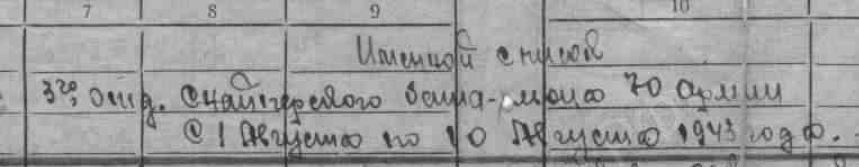 7 8 9 10
Именной список
3го отд. снайперского бата-льона 70 армии
С 1 Августа по 10 Августа 1943 года.